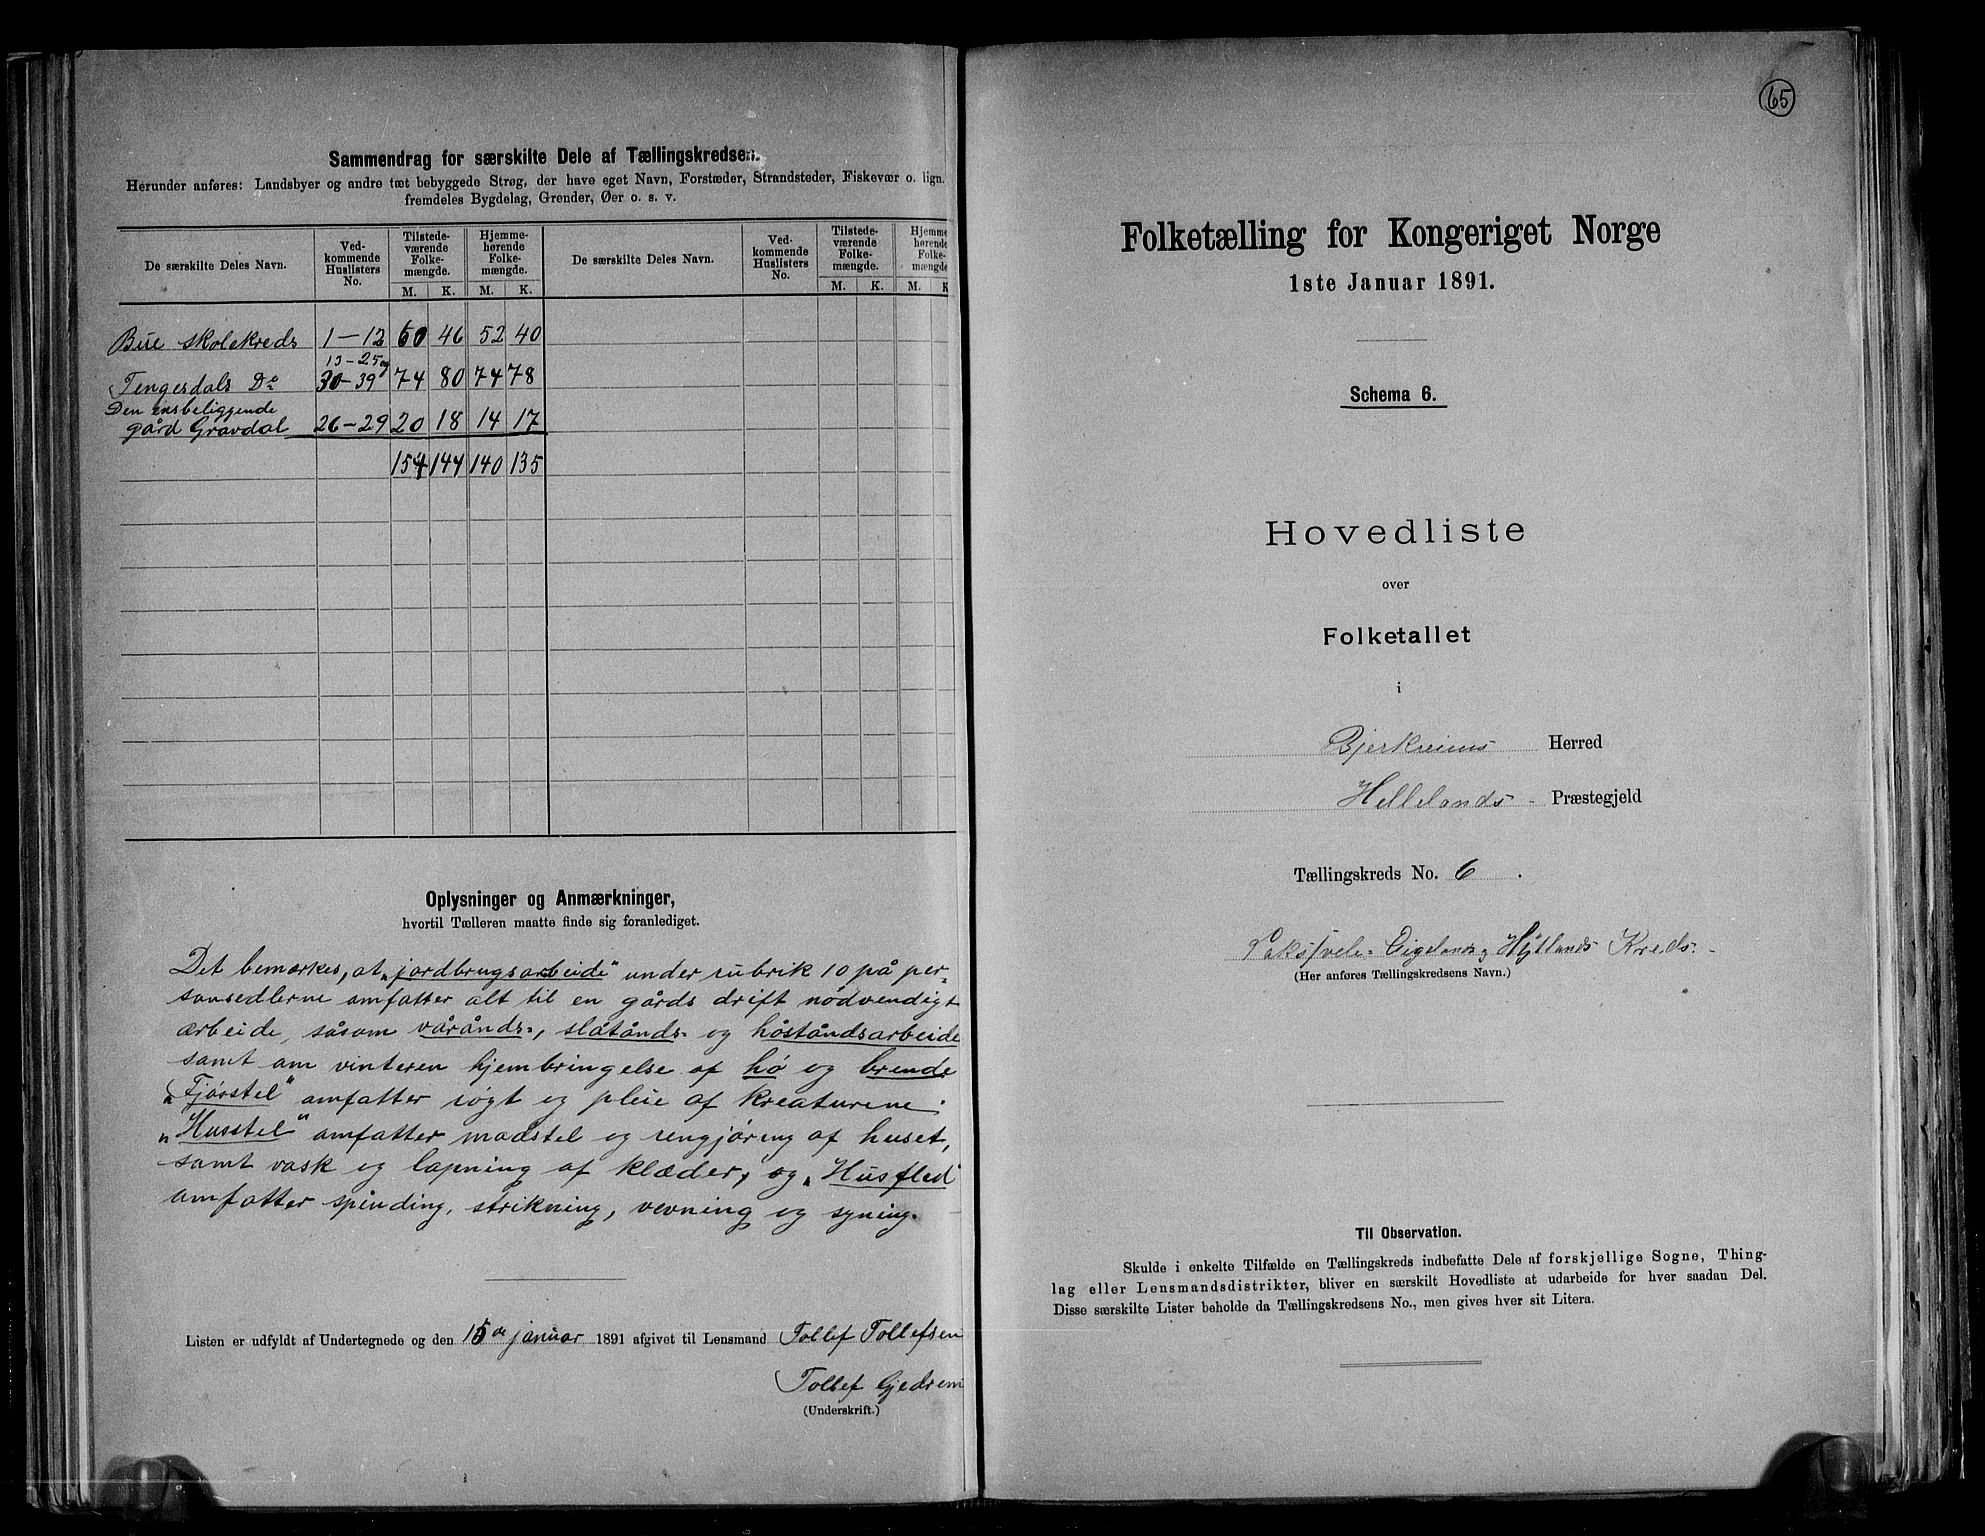 Sammendrag for særskilte Dele af Tællingskredsen.
Herunder anføres: Landsbyer og andre tæt bebyggede Strøg, der have eget Navn, Forstæder, Strandsteder, Fiskevær o. lign.
fremdeles Bygdelag, Grender, Øer o. s. v.
De særskilte Deles Navn. Ved-kommende Huslisters No. Tilstede-værende Folke-mængde. Hjemme-hørende Folke-mængde. De særskilte Deles Navn. Ved-kommende Huslisters No. Tilstede-værende Folke-mængde. Hjemme hørende Folke-mængde
M. K. M. K. M. K. M. K
Bue skolekreds 1-12 60 46 52 40
13-25 og
Tengesdals Do 30-39 74 80 74 78
Den ensbeliggende
gård Gravdal 26-29 20 18 14 17
154 144 140 135
Oplysninger og Anmærkninger,
hvortil Tælleren maatte finde sig foranlediget.
Det bemærkes, at „jordbrugsarbeide" under rubrik 10 på per-
sonsedlerne omfatter alt til en gårds drift nødvendigt
arbeide, såsom vårånds-, slåtånds- og høståndsarbeide
samt om vinteren hjembringelse af hø og brende
„Fjøsstel" omfatter røgt og pleie af kreaturene;
„Husstel" omfatter madstel og rengjøring af huset,
samt vask og lapning af klæder, og „Husflid"
omfatter spinding, strikning, vevning og syning.
Listen er udfyldt af Undertegnede og den 15de januar 1891 afgivet til Lensmand Tollef Tollefsen
Tollef Gjedrem
(Underskrift.)
65
Folketælling for Kongeriget Norge
1ste Januar 1891.
Schema 6.
Hovedliste
over
Folketallet
i
Bjerkreims Herred
Hellelands - Præstegjeld
Tællingskreds No. 6 .
Eigelands Kreds
(Her anføres Tællingskredsens Navn.)
Til Observation.
Skulde i enkelte Tilfælde en Tællingskreds indbefatte Dele af forskjellige Sogne, Thing-
lag eller Lensmandsdistrikter, bliver en særskilt Hovedliste at udarbeide for hver saadan Del.
Disse særskilte Lister beholde da Tællingskredsens No., men gives hver sit Litera.